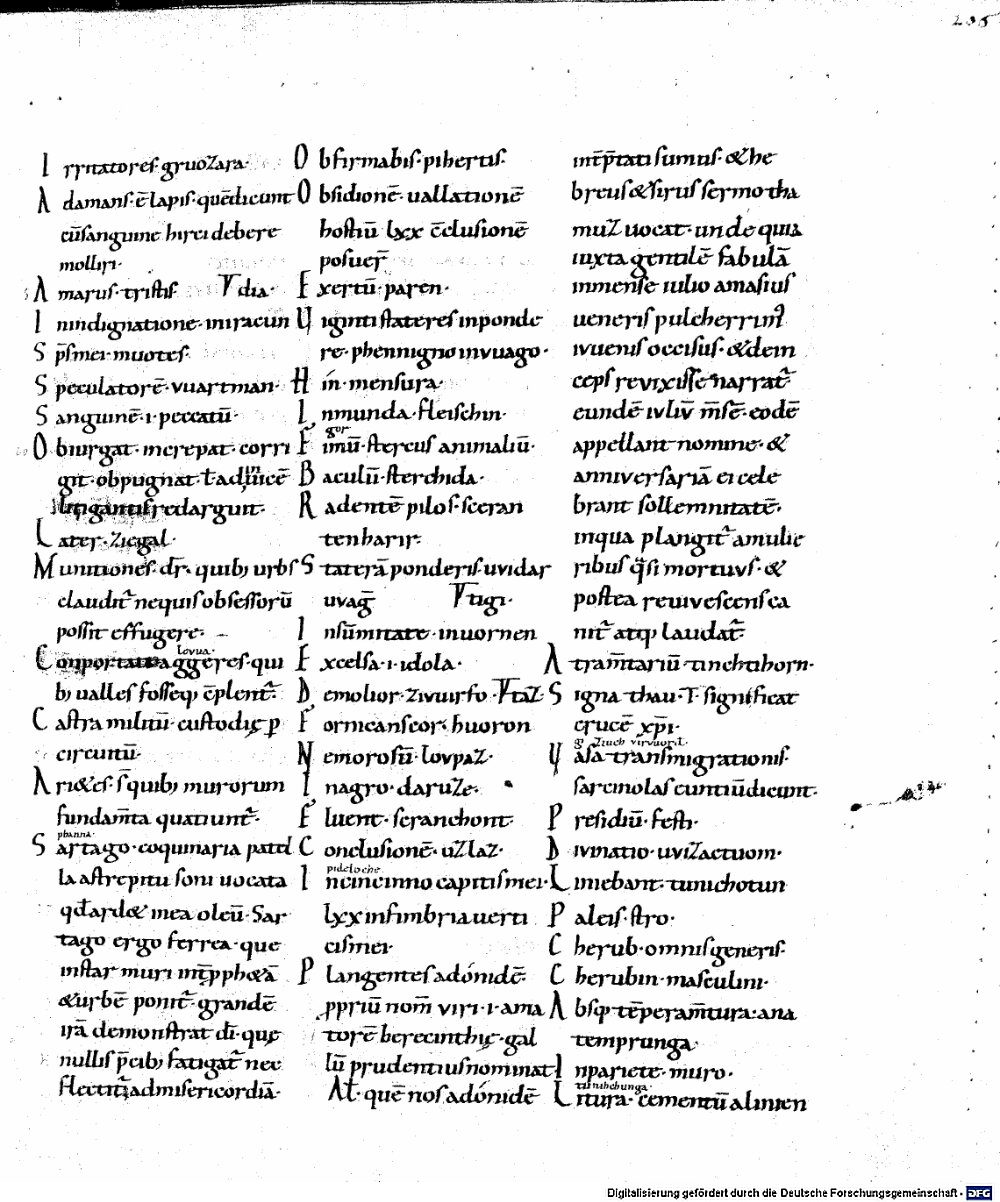 205
Irritatores. gruozara.
Adamans. ē lapis. quē dicunt
cū sanguine hirci debere
molliri.
Amarus. tristis. Vdia.
In indignatione. in iracun
Sp̄s mei. muotes.
Speculatorē. vuartman.
Sanguinē. i. peccatū.
Obiurgat. increpat. corri
git. obpugnat. ł adinuicē
litigantis redarguit.
Later. ziegal.
Munitiones. dr̄. quib; urbs
claudit̄ nequis obsessorū
possit effugere.
lovua.
Conportat aggeres. qui
b; ualles fosseq; c̄plent̄.
Castra militū. custodię p
circuitū.
Ari&es. s̄ quib; murorum
fundam̄ta quatiunt̄.
phanna.
Sartago. coquinaria patel
la a strepitu soni uocata
qđ ard& in ea oleū. Sar
tago ergo ferrea. que
instar muri int̄ p̄ph&ā
& urbē ponit̄. grandē
irā demonstrat dī. quę
nullis p̄cib; fatigat̄ nec
flectit̄ ad misericordiā.
Obfirmabis. pihertis.
Obsidionē. uallationē
hostiū. lxx c̄clusionē
posuer̄
Exertū. paren.
Uiginti stateres in ponde
re. phennigno in vuago.
Hin. mensura.
Inmunda. fleischin.
gor.
Fimū. stercus animaliū.
Baculū. sterchida.
Radentē pilos. sceran
ten harir.
Staterā ponderis. uvidar
uvaḡ Vtigi.
In sūmitate. in uornen
Excelsa. i. idola.
Demolior. zivuirfo Vtaz
Fornicans eor. huoron
Nemorosū. lovpaz.
In agro. daruze.
Fluent. seranchont.
Conclusionē. uzlaz.
pideloche
In cincinno capitis mei.
lxx in fimbria uerti
cis mei.
Plangentes adónidē.
ppriū nom̄ viri. i. ama
torē berecinthię. gal
lū prudentius nominat
At. quē nos adónidē
int̄p̄tati sumus. & he
breus & sirus sermo tha
muz uocat. unde quia
iuxta gentilē fabulā
in mense iulio amasius
ueneris pulcherrim9
ivuenis occisus. & dein
ceps revixisse narrat̄.
eundē ivliv̄ m̄sē. eodē
appellant nomine. &
anniversariā ei cele
brant sollemnitatē.
in qua plangit̄ a mulie
ribus q̄si mortuvs. &
postea reuivescens ca
nit̄ atq; laudat̄.
Atram̄tariū. tinchtihorn.
Signa thau. T. significat
crucē xp̄i.
Uasa transmigrationis.
sarcinolas euntiū dicunt.
Presidiū. festi.
Divinatio. uvizactuom.
Liniebant. tunichotun
Paleis. stro.
Cherub. omnis generis.
Cherubin. masculini.
Absq; tēperam̄tura. ana
temprunga.
In pariete. muro.
tunihchunga.
Litura. cementū a linien
Digitalisierung gefördert durch die Deutsche Forschungsgemeinschaft - DFG